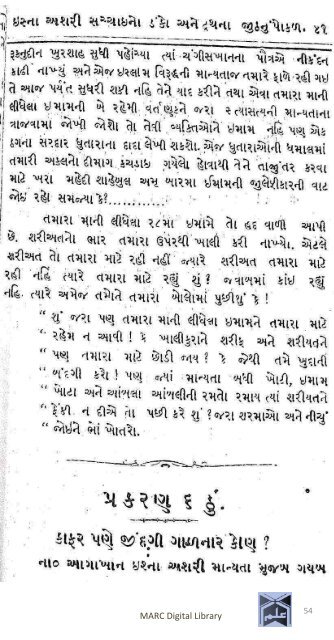 ઇસ્ના અશરી સમ્પ્રદાયનો ડંકો અને દ્રથના જુઠનું પોકળ. ૪૧
રૂકનુદીન ખુરશાહ સુધી પહોંચ્યા ત્યાં ચંગીસખાનના પૌત્રએ નીકંદન
કાઢી નાખ્યું અને એજ ઇસ્લામ વિરૂદ્ધની માન્યતાજ તમારે ફાળે રહી ગઇ
તે આજ પર્યંત સુધરી શકી નહિ તેને યાદ કરીને તથા એવા તમારા માની
લીધેલા ઇમામની બે રહેમી વર્તણુંકને જરા સ્ત્યાસત્યની માન્યતાના
ત્રાજવામાં જોખી જોશો તો તેવી વ્યક્તિઓને ઇમામ નહિ પણ એક
ઠગના સરદાર ધુતારાના દાદા લેખી શકશો. એજ ધુતારાઓની ધમાલમાં
તમારી અક્કલનો દીમાગ કંચડાઇ ગયેલો હોવાથી તેને તાજીતર કરવા
માટે ખરા મહેદી શાહેબુલ અસ્ર બારમા ઇમામની જીલેરીકારની વાટ
જોઇ રહો સમજ્યા કે!..............
તમારા માની લીધેલા ૨૮માં ઇમામે તો હદ વાળી આપી
છે. શરીઅતનો ભાર તમારા ઉપરથી ખાલી કરી નાખ્યો. એટલે
શરીઅત તો તમારા માટે રહી નહીં જ્યારે શરીઅત તમારા માટે
રહી નહિં ત્યારે તમારા માટે રહ્યું શું? જવાબમાં કાંઇ રહ્યું
નહિ. ત્યારે અમેજ તમોને તમારા બોલોમાં પુછીશું કે!
“ શું જરા પણ તમારા માની લીધેલા ઇમામને તમારા માટે
“ રહેમ ન આવી! કે ખાલીકુરાને શરીફ અને શરીઅતને
“ પણ તમારા માટે છોડી જાય? કે જેથી તમે ખુદાની
“ બંદગી કરો! પણ જ્યાં માન્યતા બધી ખોટી, ઇમામ
“ ખોટા અને આંબલા આંબલીની રમતો રમાય ત્યાં શરીયતને
“ ફેંકી ન દીએ તો પછી કરે શું? જરા શરમાઓ અને નીચું
“ જોઇને ભોં ખોતરો.
પ્રકરણ ૬ ઠું.
કાફર પણે જીંદગી ગાળનાર કોણ?
ના૦ આગાખાન ઇસ્ના અશરી માન્યતા મુજબ ગયબ
MARC Digital Library
54